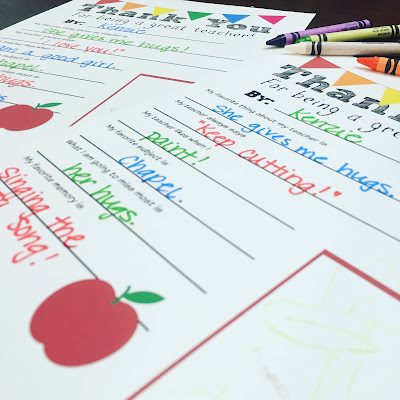 Thank you
For being a great teacher!
BY:
She gives me hugs!
"I love you!"
am a good girl.
hugs.
Thank
For being a grea
BY: Kenzie
My favorite thing about my teacher is
She gives me hugs.
My teacher always says
"Keep Cutting!"
My teacher likes when I
paint!
My favorite subject is
Chapel.
What I am going to miss most is
her hugs.
My favorite memory is
singing the
song!